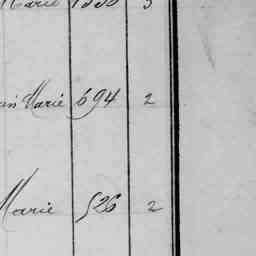 Marie 1330 3
Marie 694 2
Marie 526 2